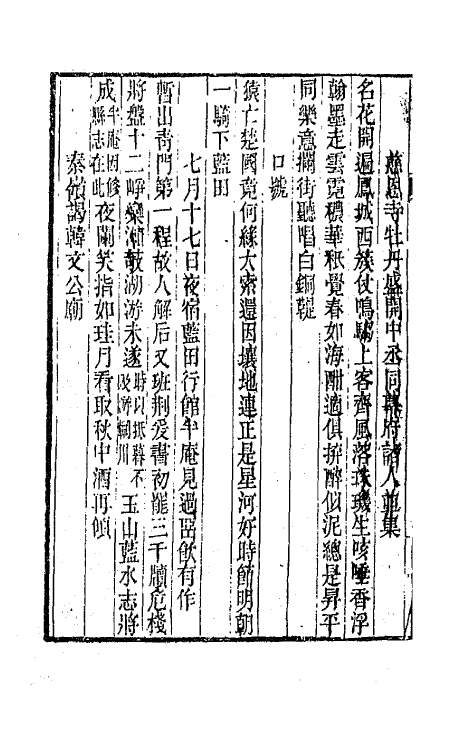 慈恩寺牡丹盛開中丞同幕府諸人並集
名花開遍鳳城西簇仗鳴騶上客齊風落珠璣生咳唾香浮
翰墨走雲霓穠華秪覺春如海酣適俱拚醉似泥總是昇平
同樂意攔街聽唱白銅鞮
口號
猿亡楚國竟何緣大索還因壤地連正是星河好時節明朝
一騎下藍田
七月十七日夜宿藍田行館半庵見過留飲有作
暫出靑門第一程故人解后又班荆爰書初罷三千牘危棧
將盤十二崢欒湖游未遂時以抵暮不及游輞川玉山藍水志將
成半庵因修縣志在此夜闌笑指如珪月看取秋中酒再傾
秦嶺謁韓文公廟